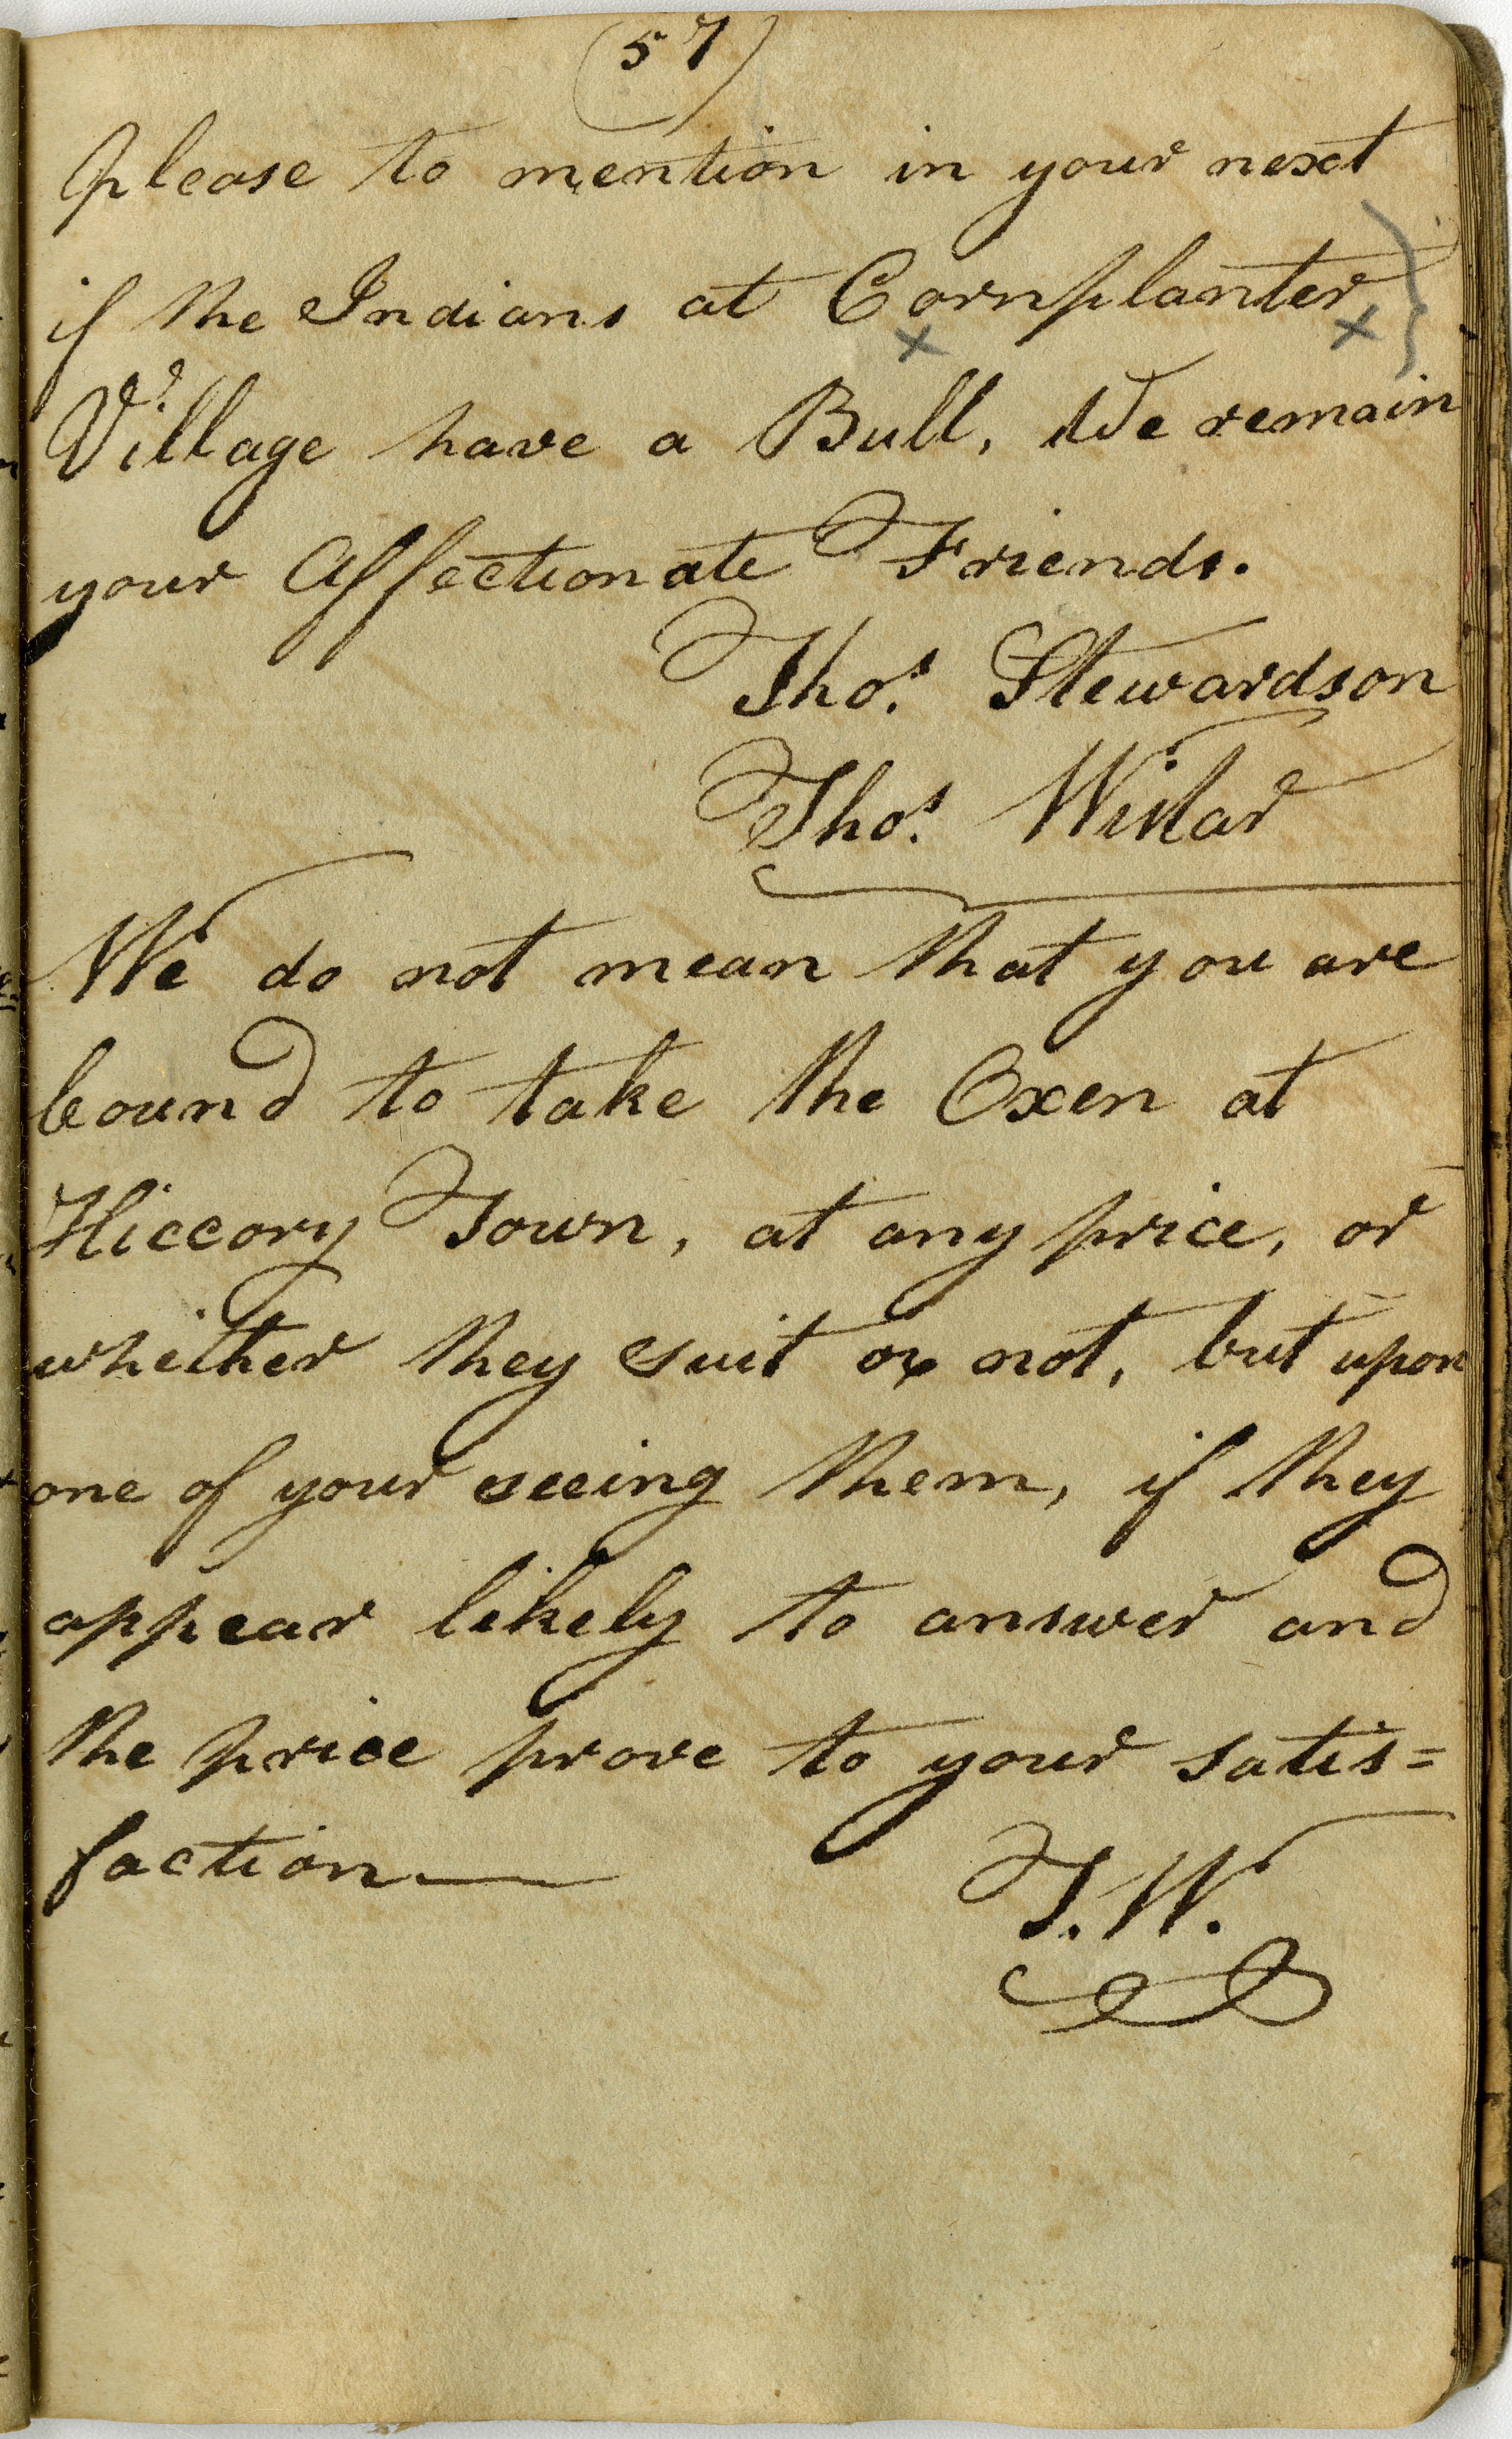 (57)
please to mention in your next
if the Indians at Cornplanter
Village have a Bull, We remain
your Affectionate Friends.
Thos. Stewardson
Thos. Wistar
We do not mean that you are
bound to take the Oxen at
Hiccory Town, at any price, or
whether they suit or not, but upon
one of your seeing them, if they
appear likely to answer and
the price prove to your satis=
faction—
T.W.